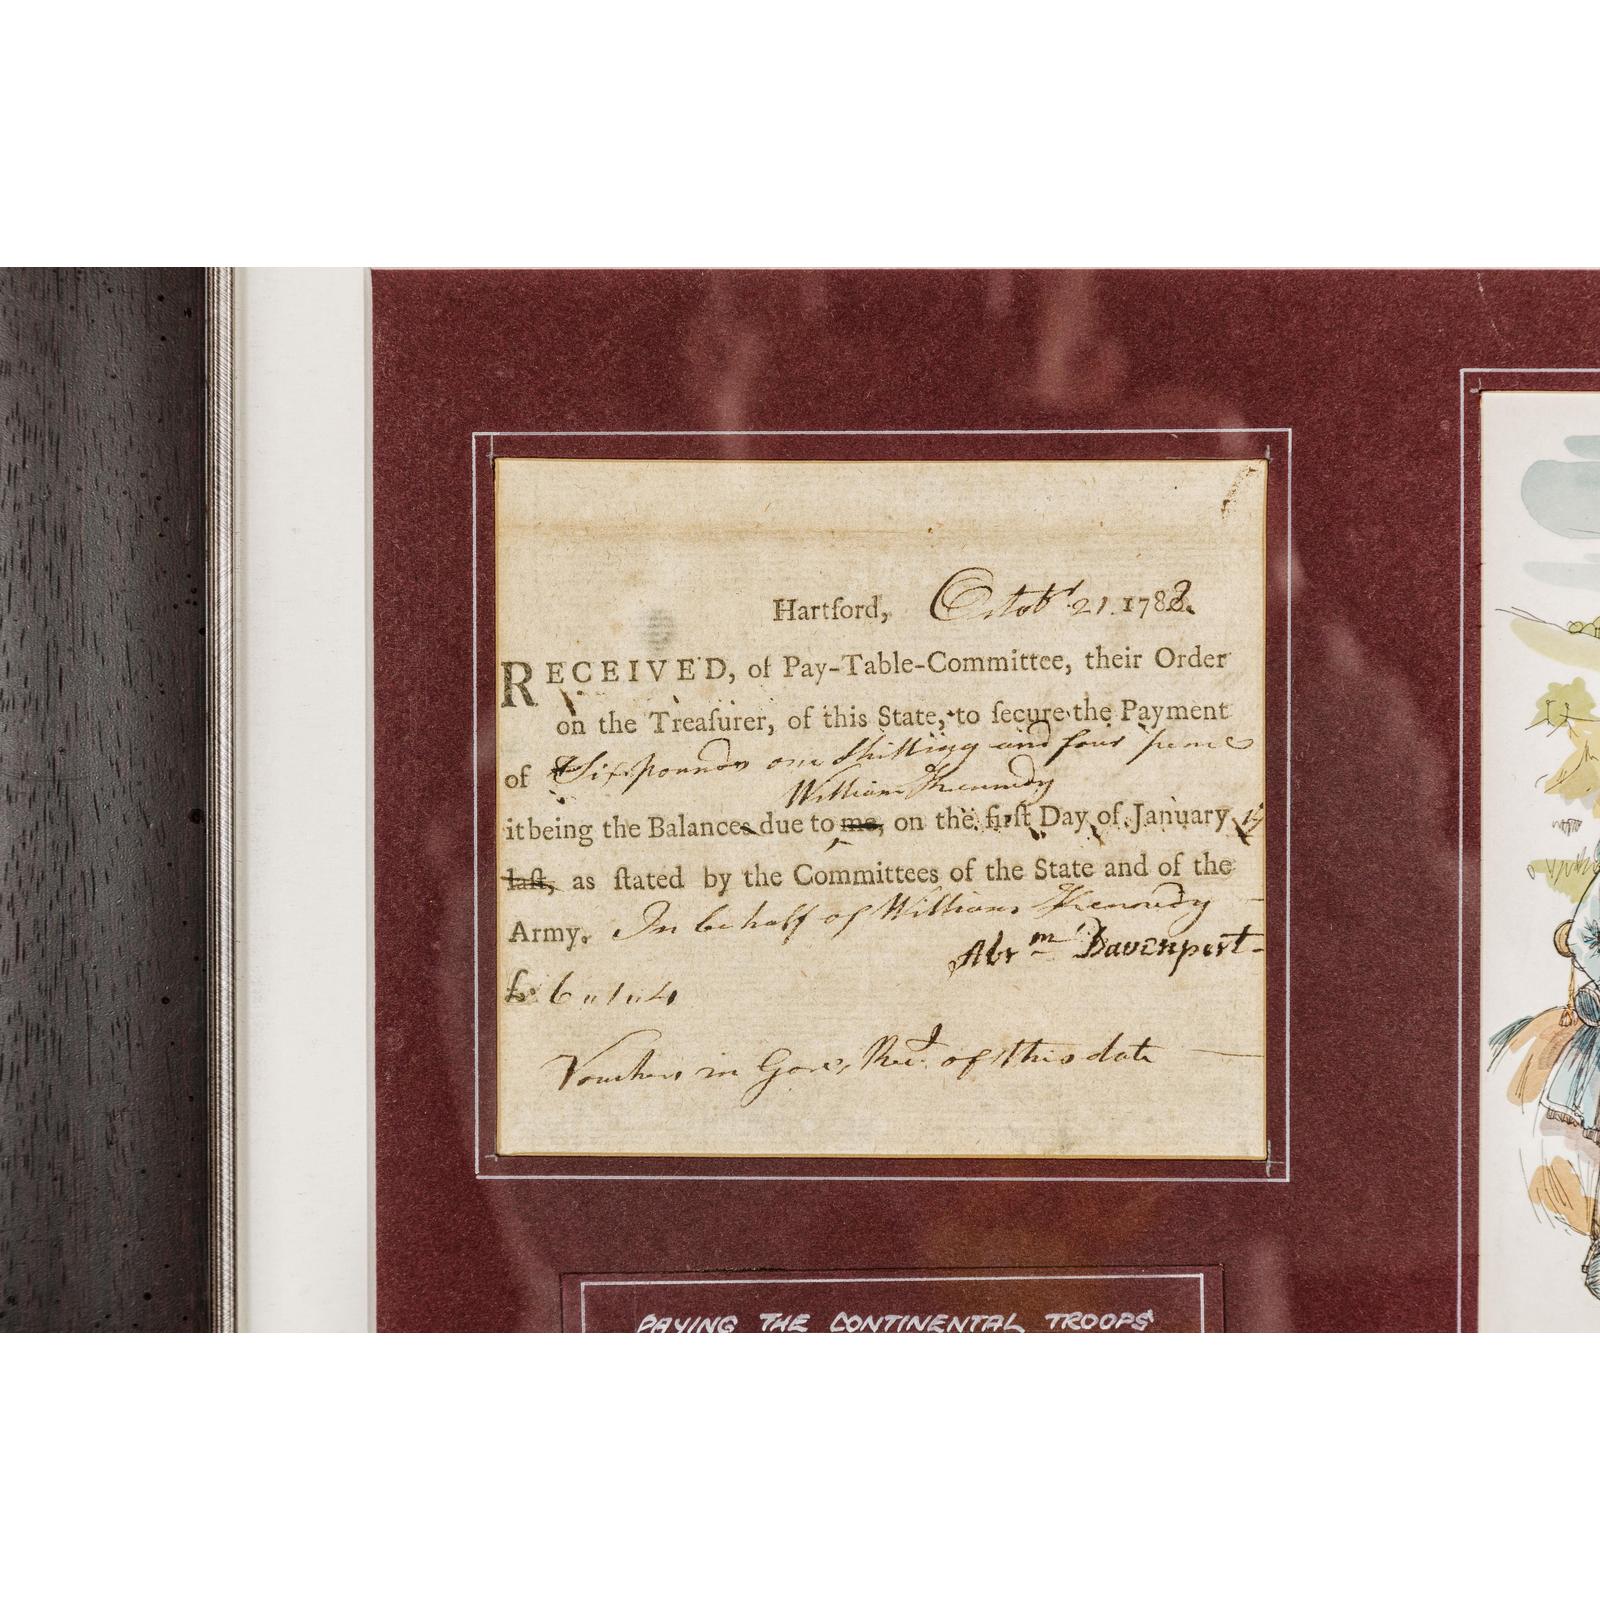 Hartford, Octobr 21. 1782.
RECEIVED, of Pay-Table-Committee, their Order
on the Treaſurer, of this State, to ſecure the Payment
of Six pounds one Shilling and four pence
William Kennedy
it being the Balances due to me, on the firſt Day of January
laſt, as ſtated by the Committees of the State and of the
Army. In behalf of William Kennedy
Abrm Davenport
£: 6 " 1 " 4
Vouchers in Rect. of this date
PAYING THE CONTINENTAL TROOPS